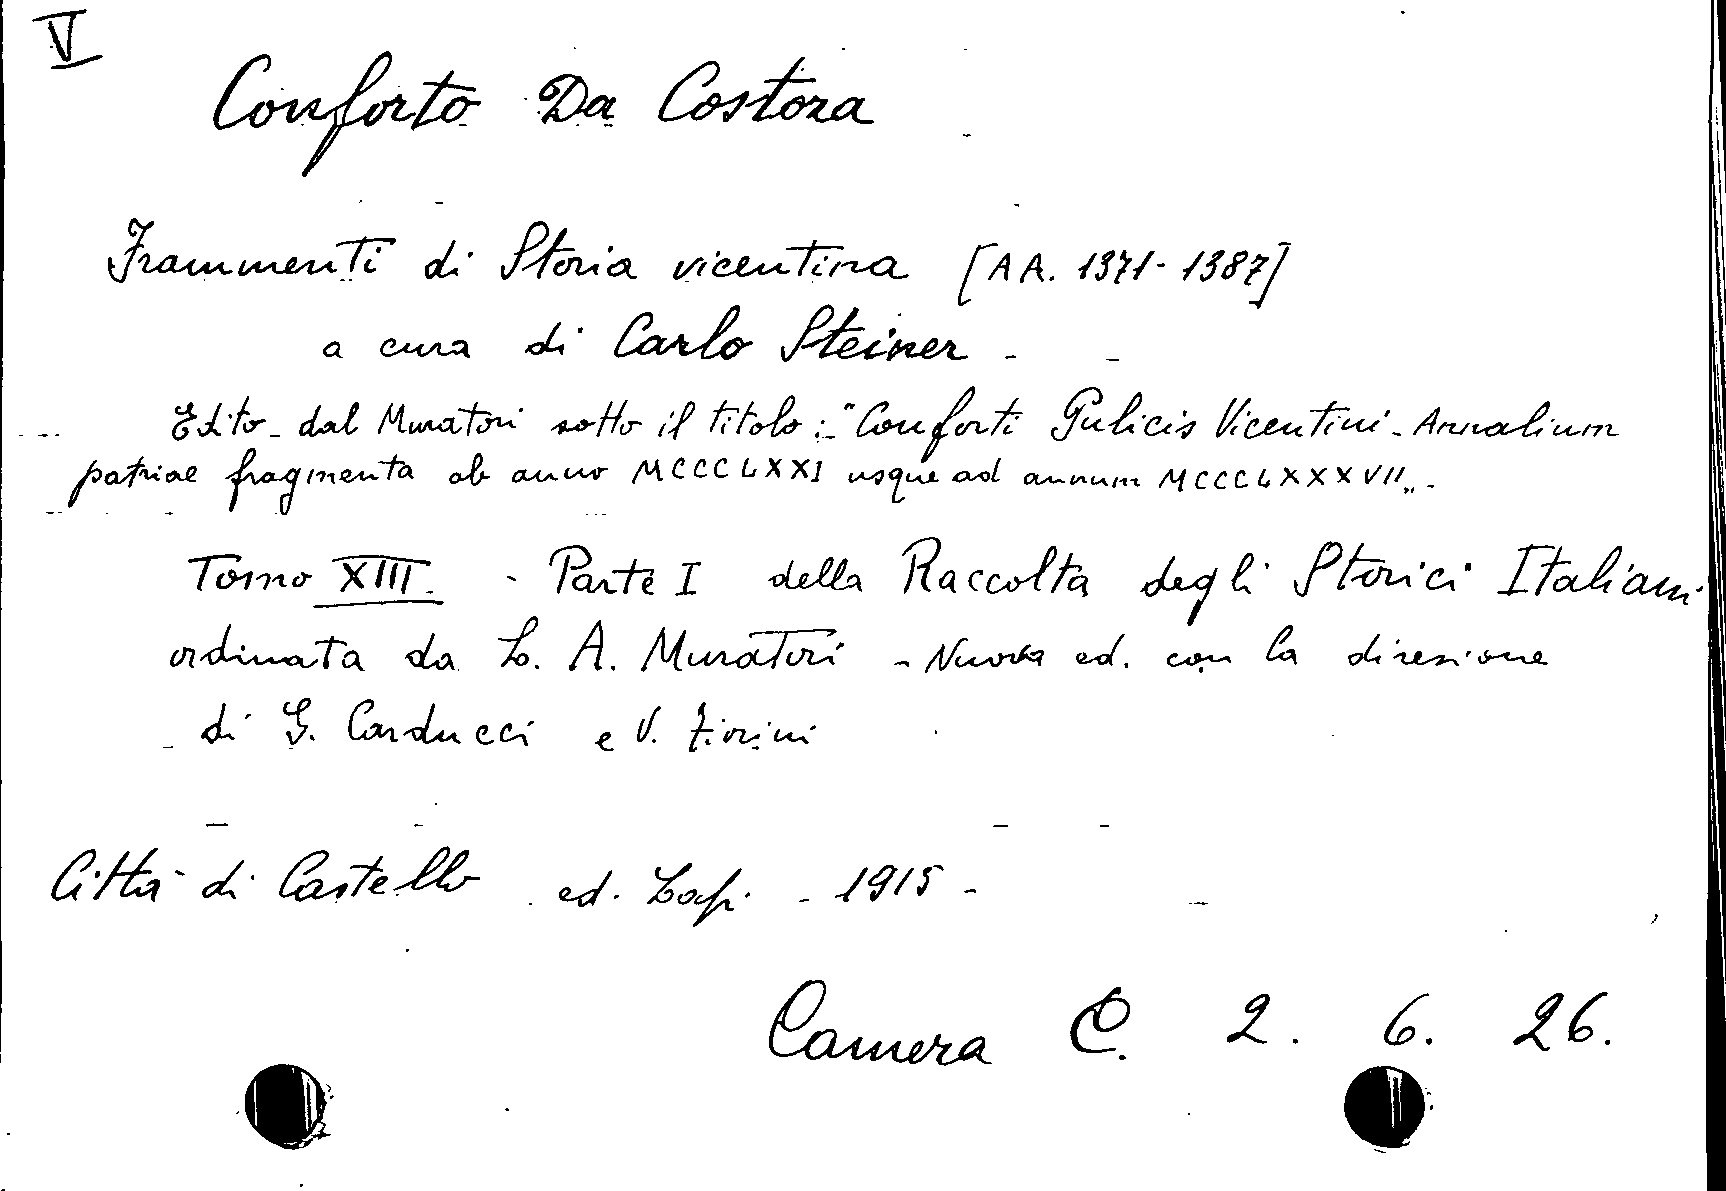 V
Conforto Da Costoza
Frammenti di Storia vicentina [AA. 1371-1387]
a cura di Carlo Steiner -
Edito dal Muratori sotto il titolo: "Conforti Pulicis Vicentini - Annalium
patriae fragmenta ab anno MCCCLXXI usque ad annum MCCCLXXXVII„ -
Tomo XIII - Parte I della Raccolta degli Storici Italiani
ordinata da L. A. Muratori - Nuova ed. con la direzione
di G. Carducci e V. Fiorini
Città di Castello ed. Lapi - 1915 -
Camera C. 2. 6. 26.